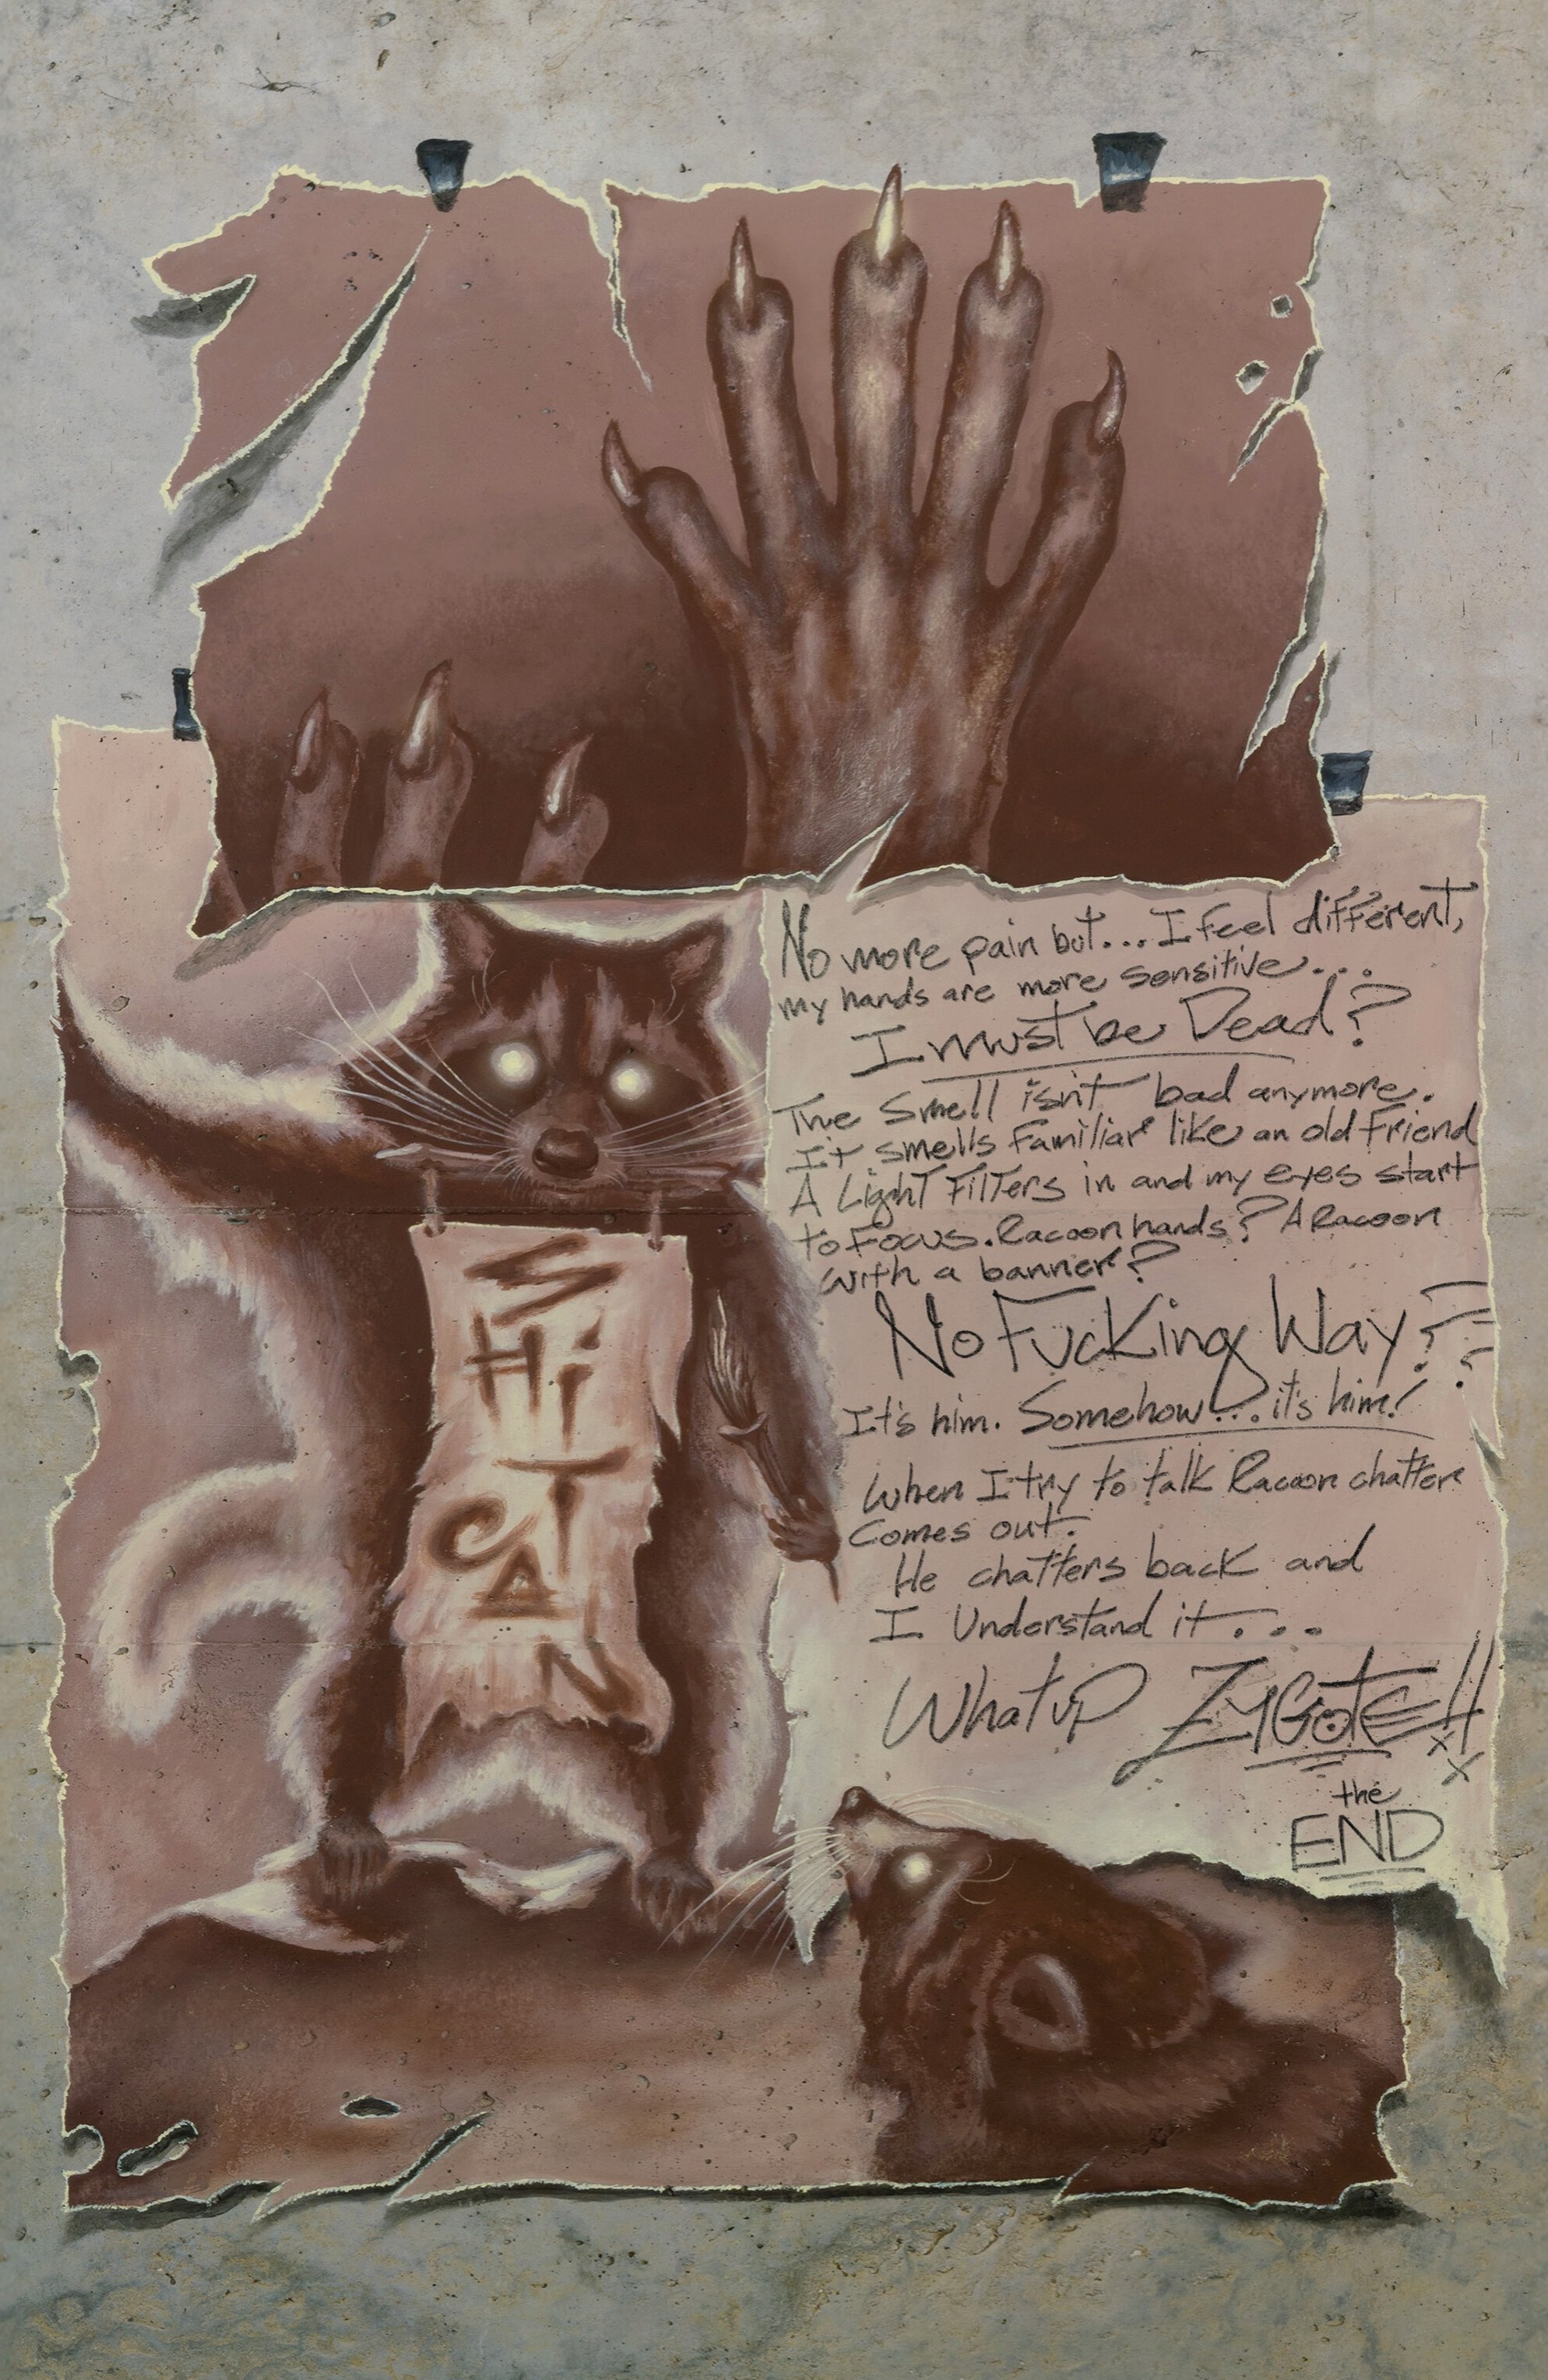 No more pain but... I feel different,
my hands are more sensitive...
I must be Dead?
The Smell isn't bad anymore.
It smells familiar like an old friend
A Light Filters in and my eyes start
to Focus. Racoon hands? A Racoon
with a banner?
No Fucking Way???
It's him. Somehow... it's him!
When I try to talk Racoon chatter
Comes out.
He chatters back and
I Understand it...
What up ZYGOTE!!
the
END
SHiT
CAN